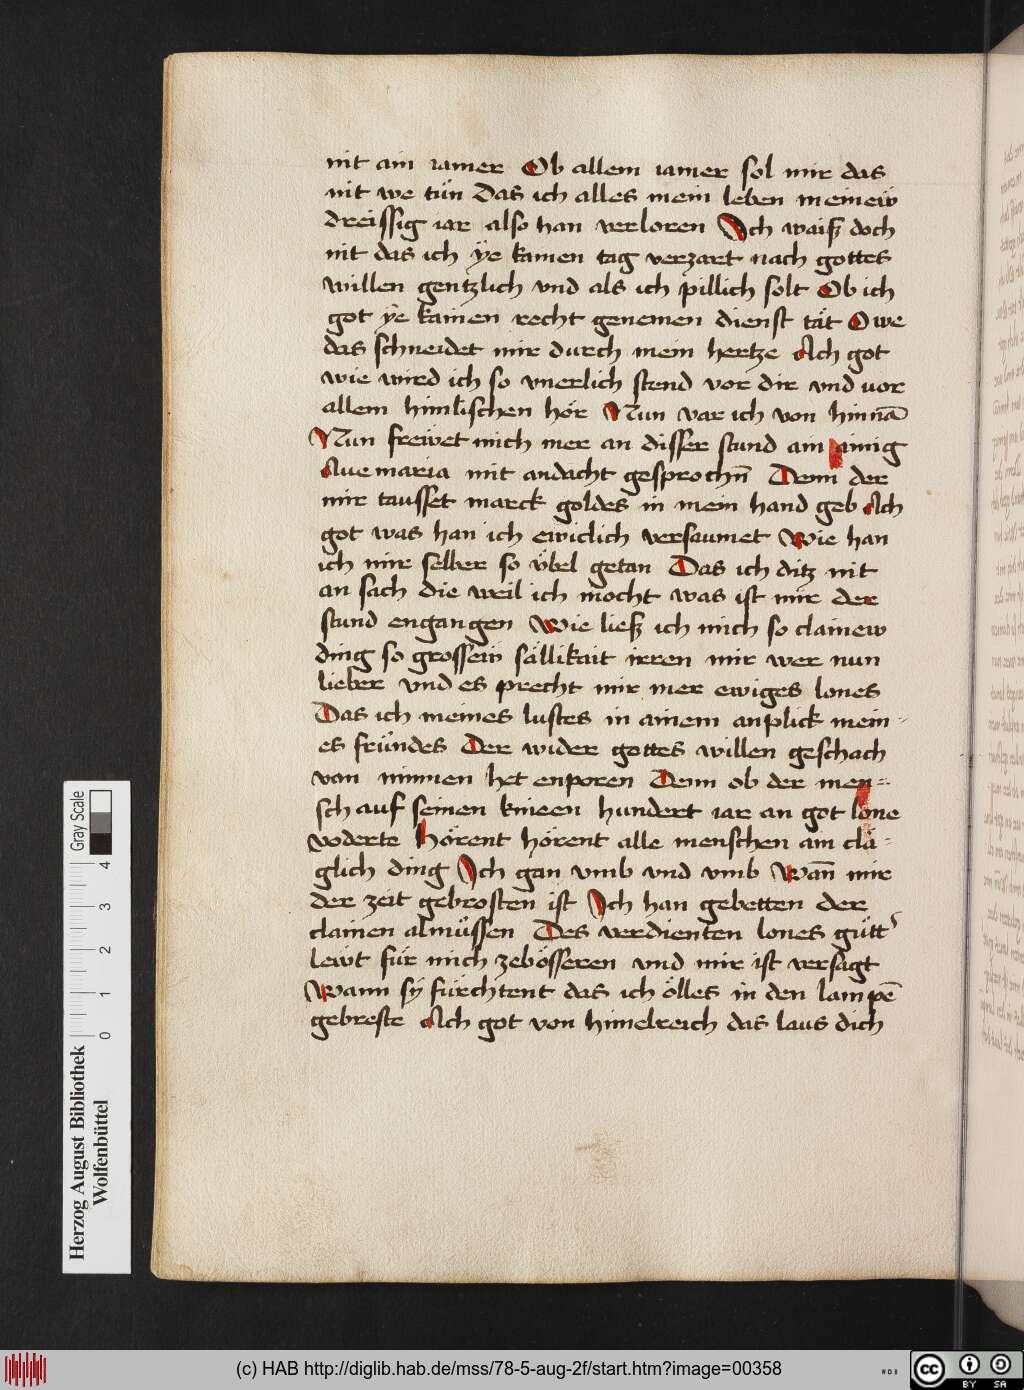 nit ain iamer Ob allem iamer sol mir das
nit we tůn Das ich alles mein leben meineẅ
dreissig iar also han verloren Ich waiß doch
nit das ich ÿe kainen tag verzart nach gottes
willen gentzlich vnd als ich pillich solt Ob ich
got ÿe kainen recht genemen dienst tät Owe
das schneidet mir durch mein hertze Ach got
wie wird ich so vnerlich stend vor dir vnd vor
allem himlischen hör Nun var ich von hinnā
Nun freẅet mich mer an disser stund ain ainig
Aue maria mit andacht gesprochn̄ Denn der
mir tausset marck goldes in mein hand geb Ach
got was han ich ewiclich versaumet Wie han
ich mir selber so v̈bel getan Das ich ditz nit
an sach die weil ich mocht was ist mir der
stund engangen Wie ließ ich mich so clainew
ding so grosseẅ sällikait irren mir wer nun
lieber vnd es precht mir mer ewiges lones
Das ich meines lustes in ainem anplick mein-
es fründes Der wider gottes willen geschach
von nimmen het enporen Denn ob der men-
sch auf seinen knieen hundert iar an got lone
voderte Hörent hörent alle menschen am clä-
glich ding Ich gan vmb vnd vmb Wan̄ mir
der zeit gebrosten ist Ich han gebetten der
clainen almüssen Des verdienten lones gütt'
leẅt für mich zebösseren vnd mir ist versagt
Wann sÿ fürchtent das ich ölles in den lampē
gebreste Ach got von himelreich das laus dich
Herzog August Bibliothek
Wolfenbüttel
0 1 2 3 4
Gray Scale
(c) HAB http://diglib.hab.de/mss/78-5-aug-2f/start.htm?image=00358
cc BY SA